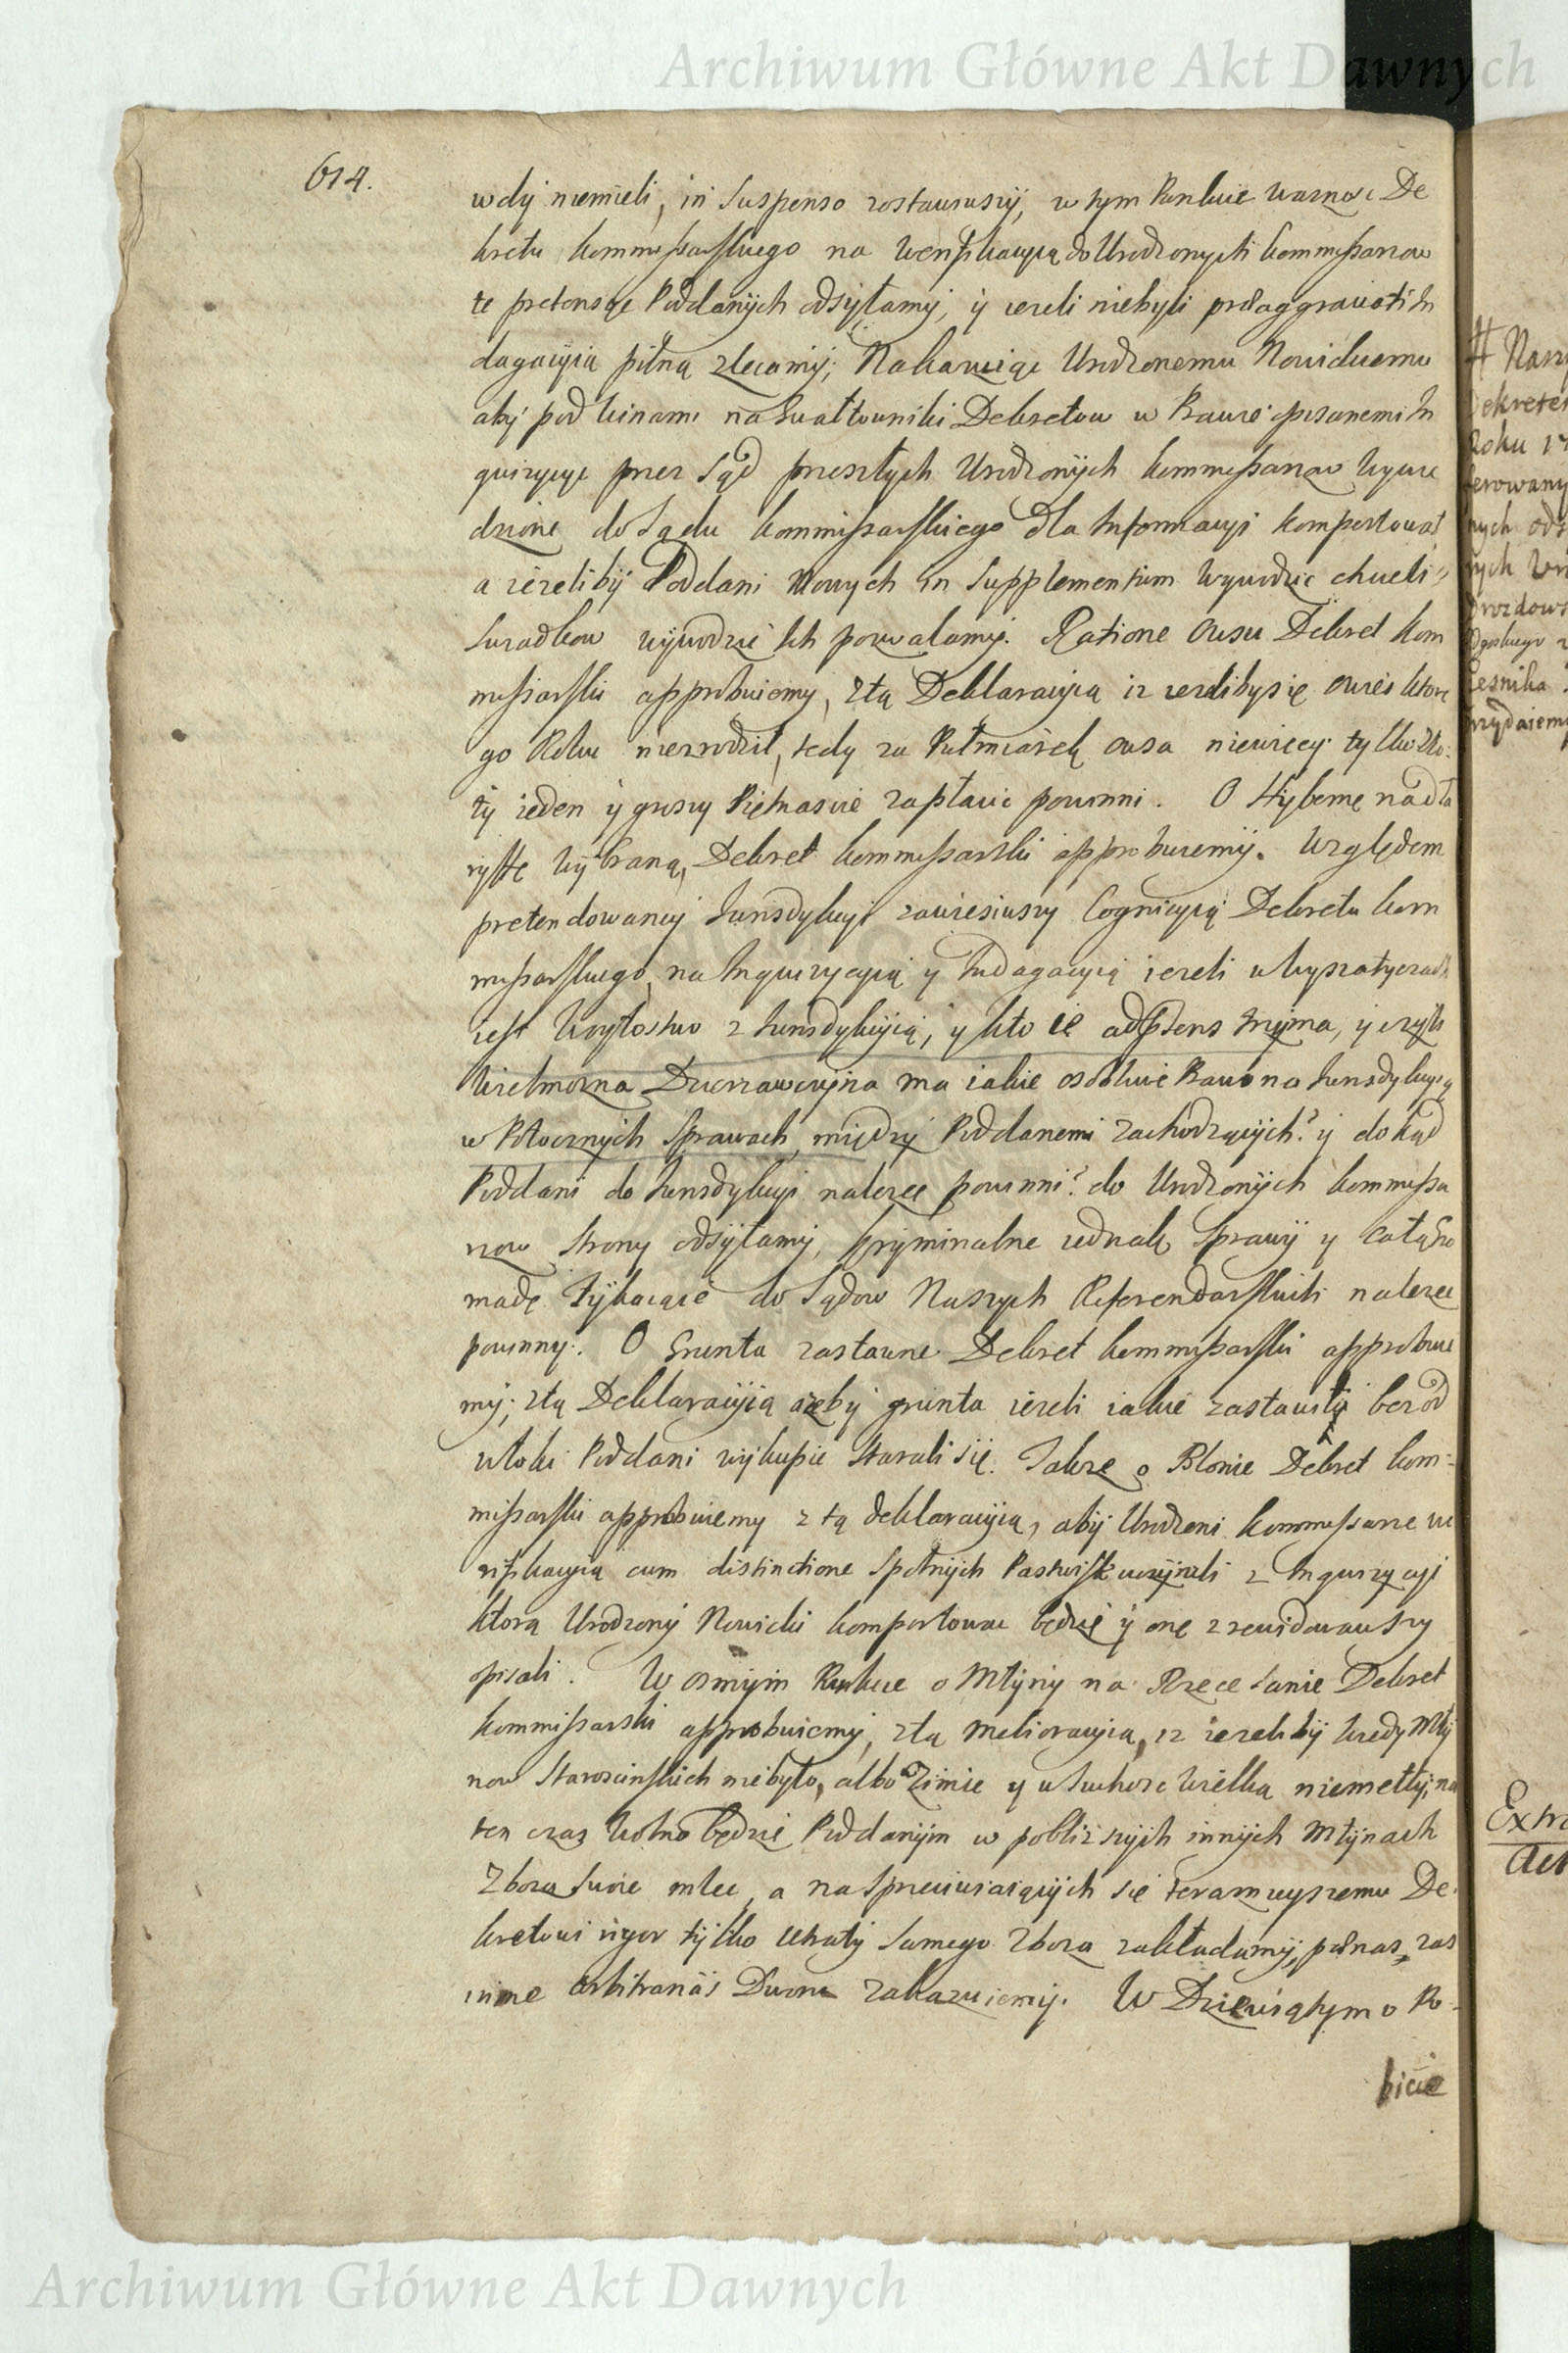 Archiwum Główne Akt Dawnych
614.
wdy niemieli, in Suspenso zostawuszy, w tym Punkcie waznosc De
kretu kommissarskiego na weryfikacyią do Urodzonych kommissarzow
te pretensye Poddanych odsyłamy, y iezeli niebyli praeaggravati In
dagacyią pilną zlecamy; Nakazuiąc Urodzonemu Nowickiemu
aby pod winami na Gwałtowniki Dekretow w Prawie opisanemi In
quizycye przez Sąd przeszłych Urodzonych kommissarzow wywie
dzione do Sądu kommissarskiego dla Informacyi komportował
a iezeliby Poddani Nowych in Supplementum wywodzic chcieli
Swiadkow wywodzic Ich pozwalamy. Ratione Owsu Dekret kom
missarski approbuiemy, ztą Deklaracyią iz iezeliby się owies ktore
go Roku niezrodził, tedy za Pułmiarek owsa niewięcy tylko Zło:
ty ieden y groszy Piętnascie zapłacic powinni. O Hybernę nad ta
ryffę wybraną, Dekret kommissarski approbuiemy. Względem
pretendowaney Jurisdykcyi zawiesiwszy Cognicyią Dekretu kom
missarskiego, na Inquizycyią y Indagacyią iezeli
iest Woytostwo z Jurisdykcyią, y kto ie adpraesens trzyma, y czyli
Wielmozna Dzierzawczyna ma iakie osobliwe Prawo na Jurisdykcyią
w Potocznych Sprawach, między Poddanemi zachodzących? y dokąd
Poddani do Jurisdykcyi nalezec powinni? do Urodzonych kommissa
rzow Strony odsyłamy, kryminalne iednak Sprawy y całą Gro
madę Tykaiące do Sądow Naszych Referendarskich nalezec
powinny. O Grunta zastawne Dekret kommissarski approbuie
my; ztą Deklaracyią azeby grunta iezeli iakie zastawiły bez od
włoki Poddani wykupic starali się. Takze o Błonie Dekret kom=
missarski approbuiemy z tą deklaracyią, aby Urodzeni kommissarze we
ryfikacyią cum distinctione Spolnych Pastwisk uczynili z Inquizycyi
ktorą Urodzony Nowicki komportowac będzie y onę zrewidowawszy
opisali. W osmym Punkcie o Młyny na Rzece Sanie Dekret
kommissarski approbuiemy, ztą melioracyią, iz iezeliby kiedy Mły
now Staroscinskich niebyło, albo w Zimie y w Suchosc Wielka niemełły, na
ten czas Wolno będzie Poddanym w poblizszych innych Młynach
Zboza Swoie mlec, a na Sprzeciwiaiących się teraznieyszemu De:
kretowi rigor tylko utraty Samego Zboza zakładamy, pod nas, zas
inne arbitrariis Dworu zakazuiemy. W Dziewiątym o Ro-
bicie
# Nasz
Dekrete
Roku 17
ferowany
nych ods
rych
Drozdows
Czesnika
przydaiemy
Extra
Act
Archiwum Główne Akt Dawnych